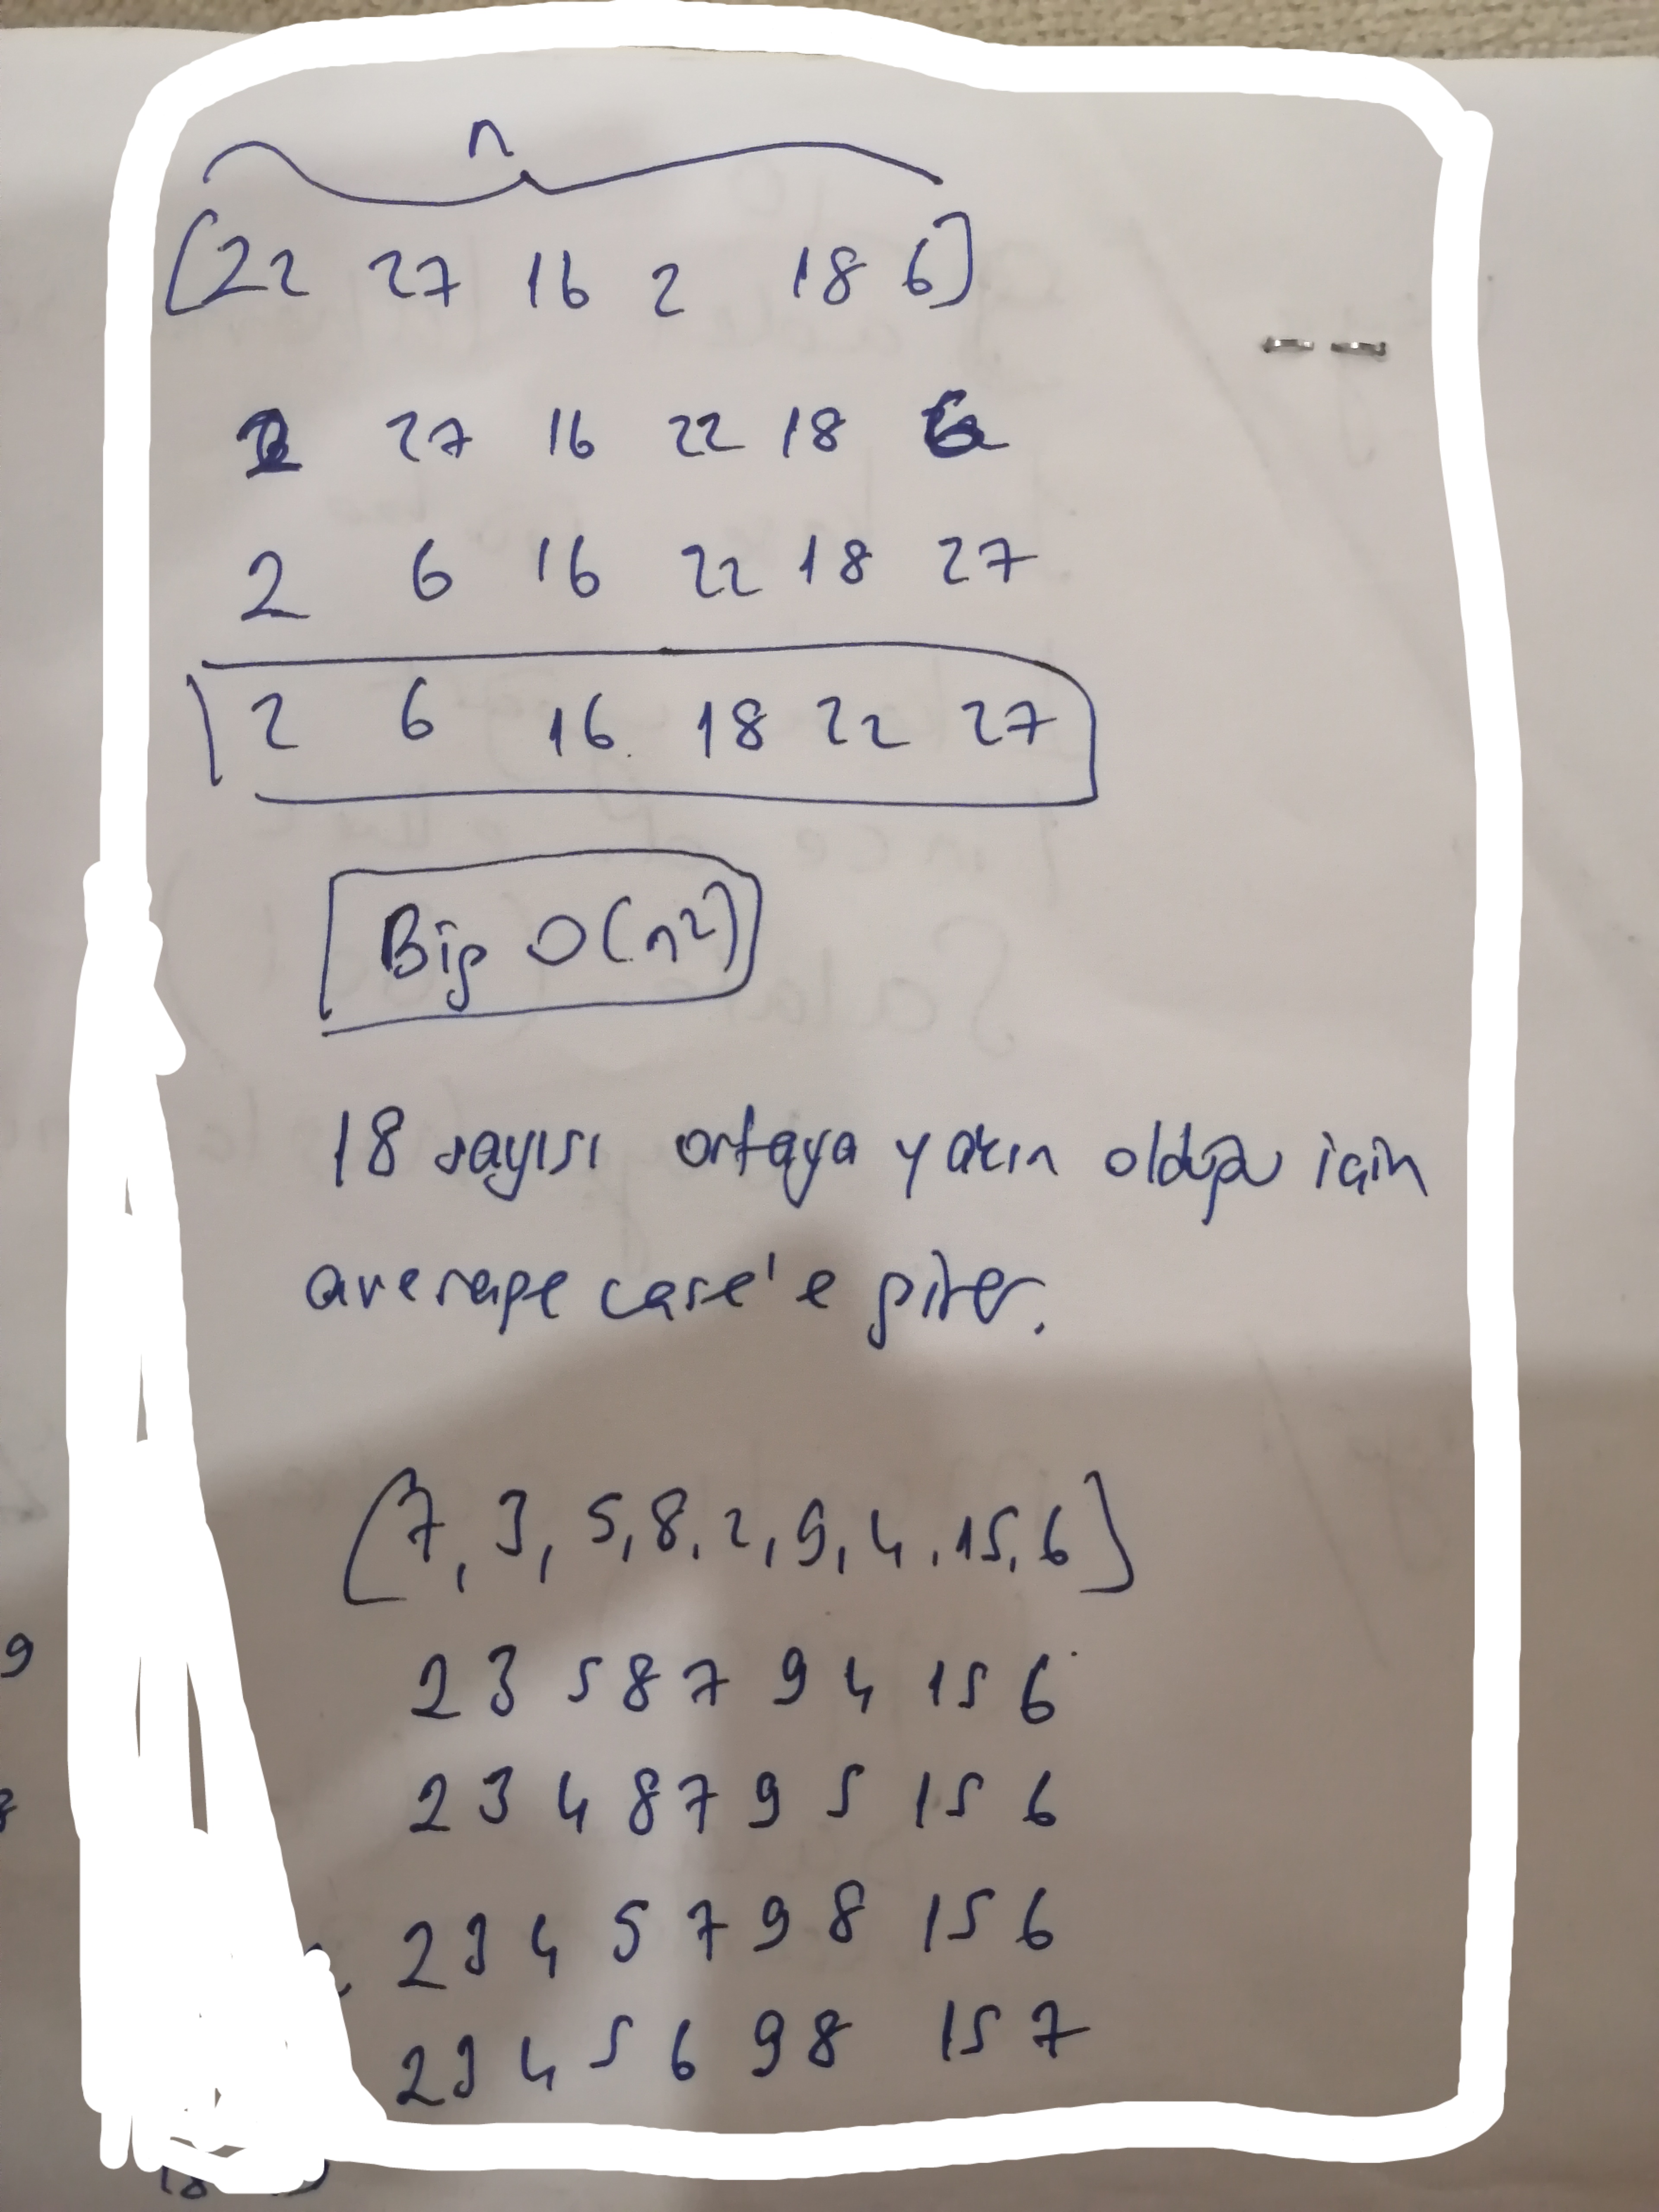 n
[22 27 16 2 18 6]
2 27 16 22 18 6
2 6 16 22 18 27
2 6 16 18 22 27
Big O(n²)
18 sayısı ortaya yakın olduğu için
average case'e girer.
[7, 3, 5, 8, 2, 9, 4, 15, 6]
2 3 5 8 7 9 4 15 6
2 3 4 8 7 9 5 15 6
2 3 4 5 7 9 8 15 6
2 3 4 5 6 9 8 15 7
9